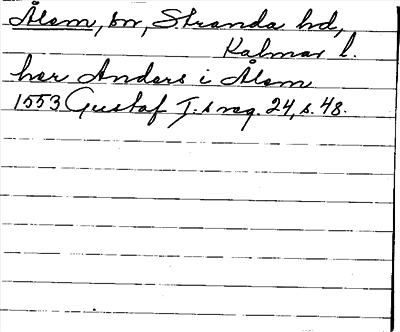 Ålem, sn, Stranda hd,
Kalmar l.
her Anders i Ålem
1553 Gustaf I:s reg. 24, s. 48.